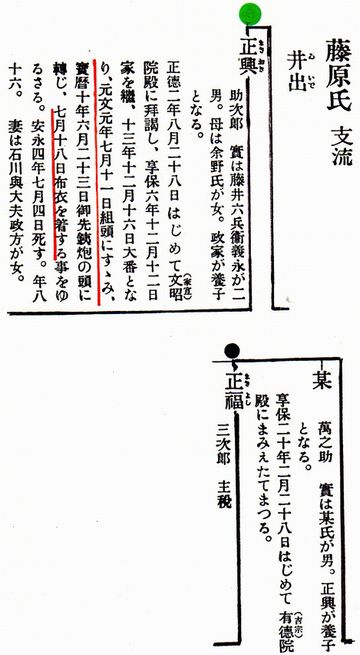 藤原氏 支流
井出
正興
助次郎 實は藤井六兵衞義永が二
男。母は余野氏が女。政家が養子
となる。
正德二年八月二十八日はじめて文昭
(家宣)
院殿に拜謁し、享保六年十二月十二日
家を繼、十三年十二月十六日大番とな
り、元文元年七月十一日組頭にすゝみ、
寶曆十年六月二十三日御先銕炮の頭に
轉じ、七月十八日布衣を着する事をゆ
るさる。安永四年七月四日死す。年八
十六。 妻は石川與大夫政方が女。
某
萬之助 實は某氏が男。正興が養子
となる。
享保二十年二月二十八日はじめて 有德院
(吉宗)
殿にまみえたてまつる。
正福
三次郎 主稅